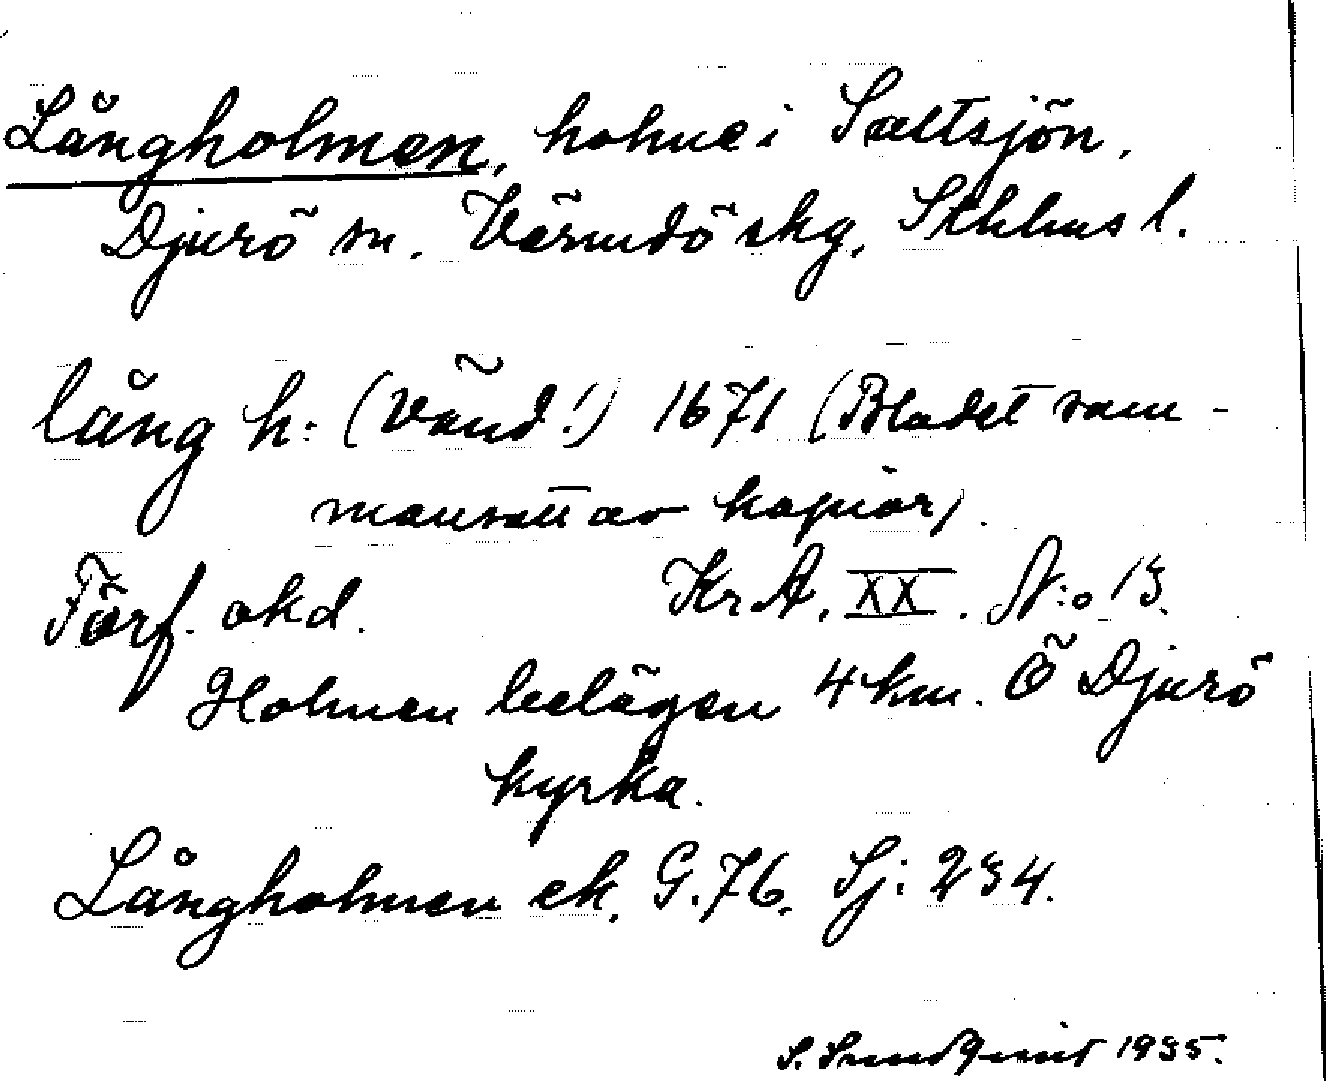 Långholmen, holme i Saltsjön,
Djurö sn. Värmdö skg, Sthlms l.
lång h: (Vänd!) 1671 (Bladet sam-
mansatt av kopior).
Förf. okd. Kr. A. XX. N:o 13.
Holmen belägen 4 km. Ö Djurö
kyrka.
Långholmen ek. G. 76. Sj: 234.
S. Sundqvist 1935.